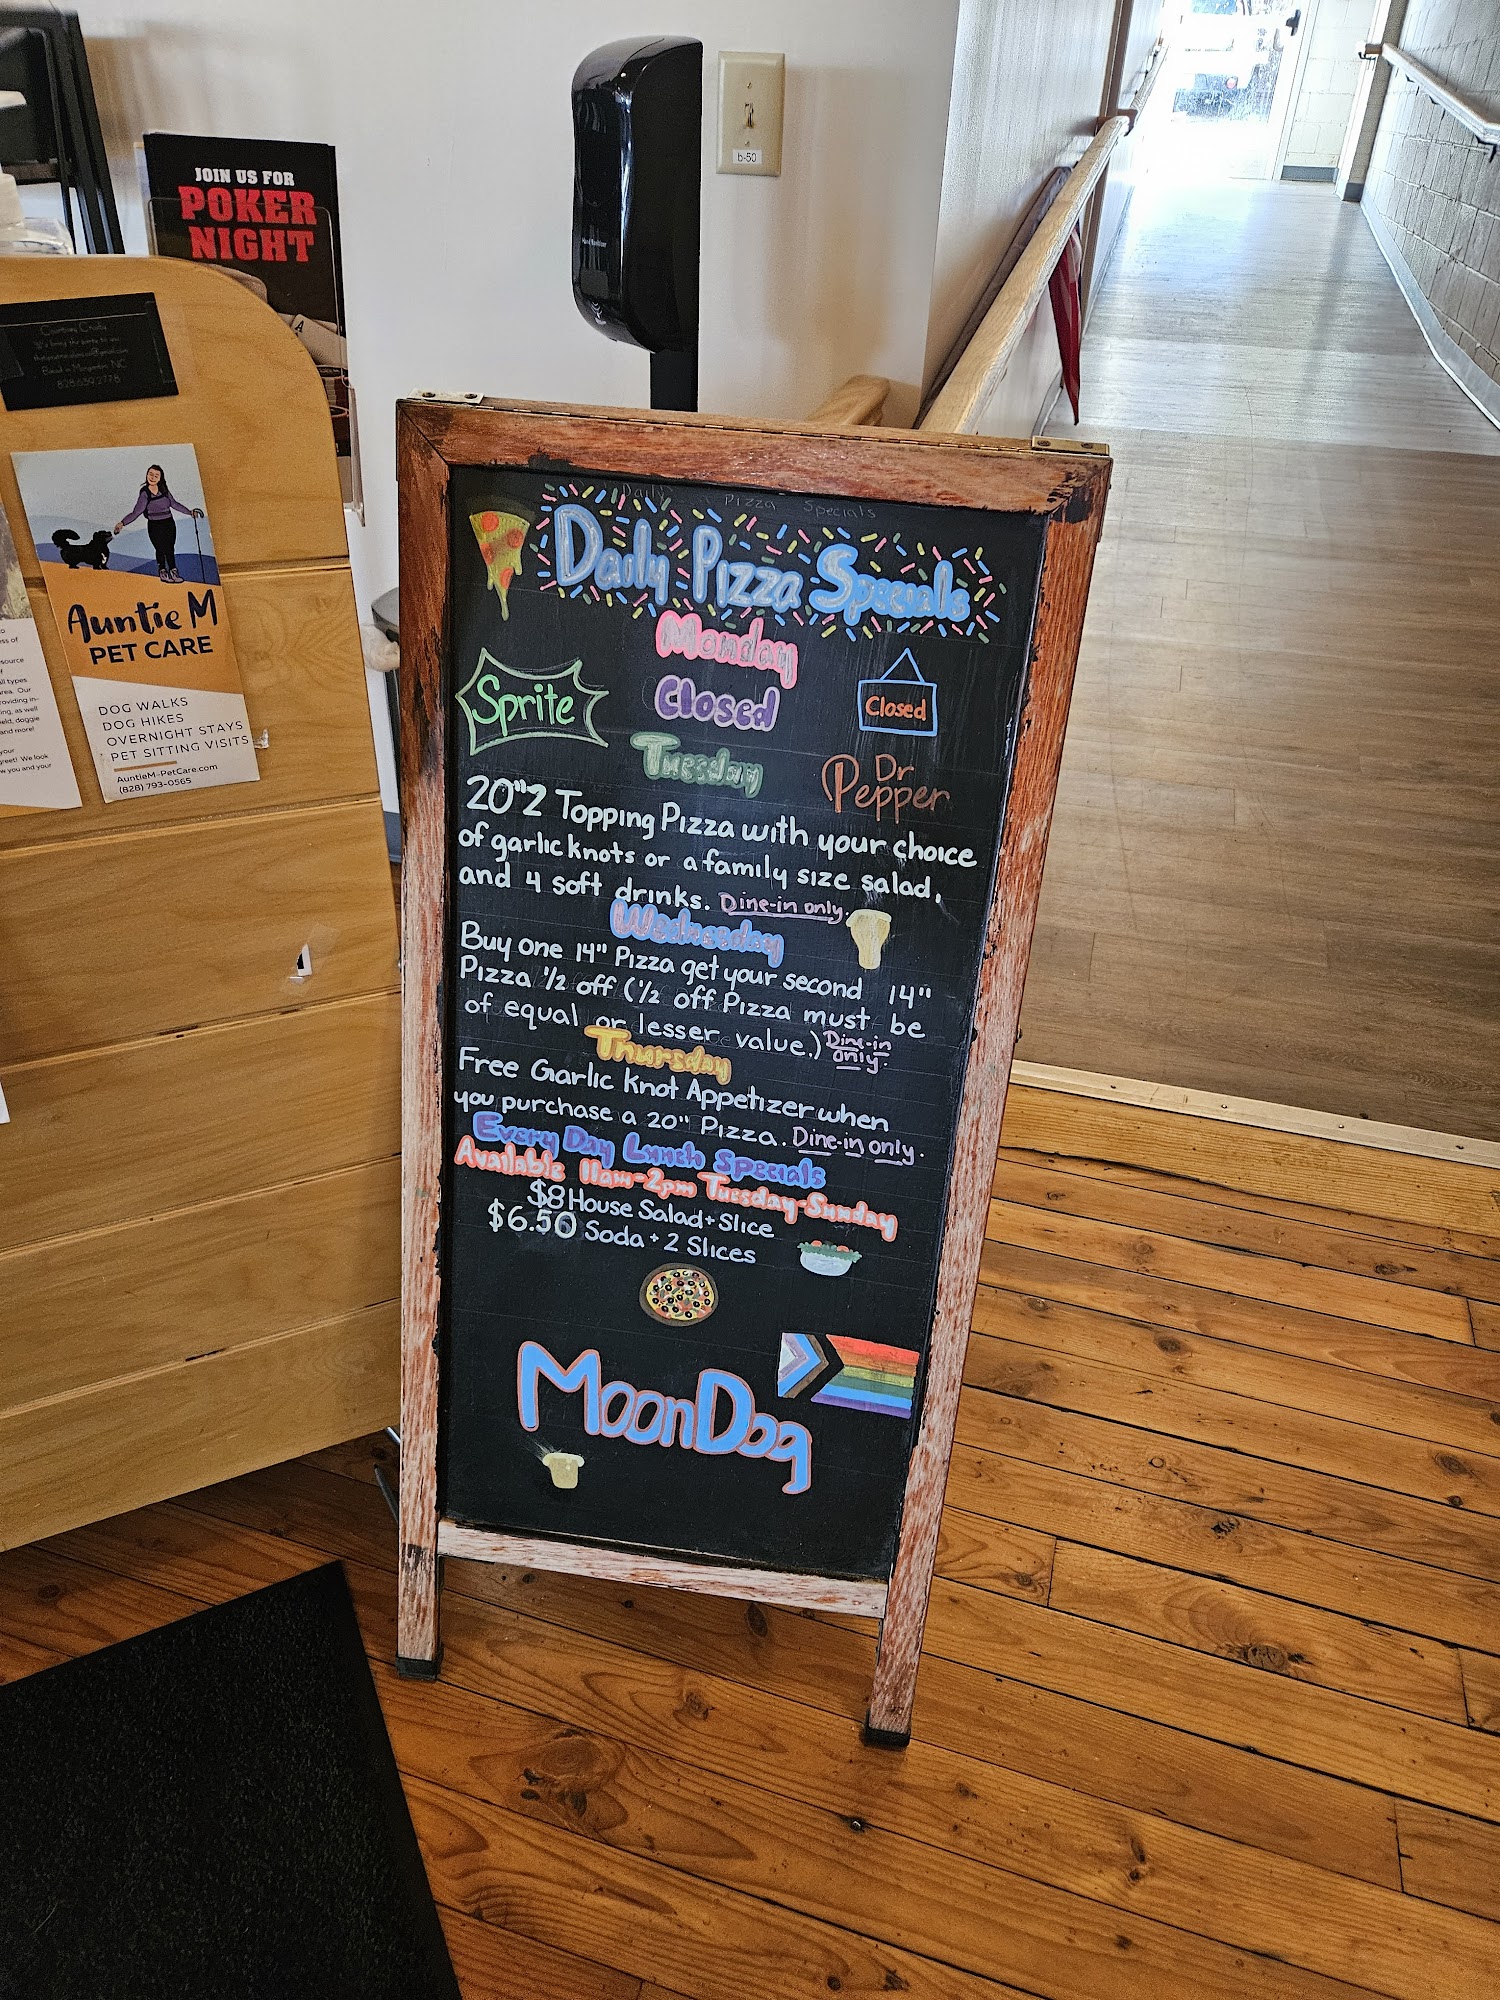 JOIN US FOR
POKER
NIGHT
Hand Sanitizer
b-50
828.659.2778
Auntie M
PET CARE
DOG WALKS
DOG HIKES
OVERNIGHT STAYS
PET SITTING VISITS
AuntieM-PetCare.com
(828) 793-0565
Daily Pizza Specials
Daily Pizza Specials
Monday
Sprite
Closed
Closed
Tuesday
Dr
Pepper
20" 2 Topping Pizza with your choice
of garlic knots or a family size salad,
and 4 soft drinks. Dine-in only.
Wednesday
Buy one 14" Pizza get your second 14"
Pizza 1/2 off (1/2 off Pizza must be
of equal or lesser value.) Dine-in
only.
Thursday
Free Garlic Knot Appetizer when
you purchase a 20" Pizza. Dine-in only.
Every Day Lunch Specials
Available 11am-2pm Tuesday-Sunday
$8 House Salad + Slice
$6.50 Soda + 2 Slices
MoonDog